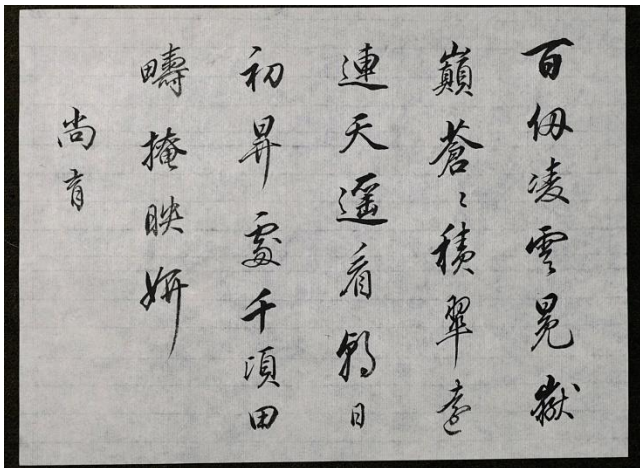 百仭凌雲晃嶽
巓蒼〻積翠遠
連天遥看朝日
初昇處千項田
疇掩映妍
尚育